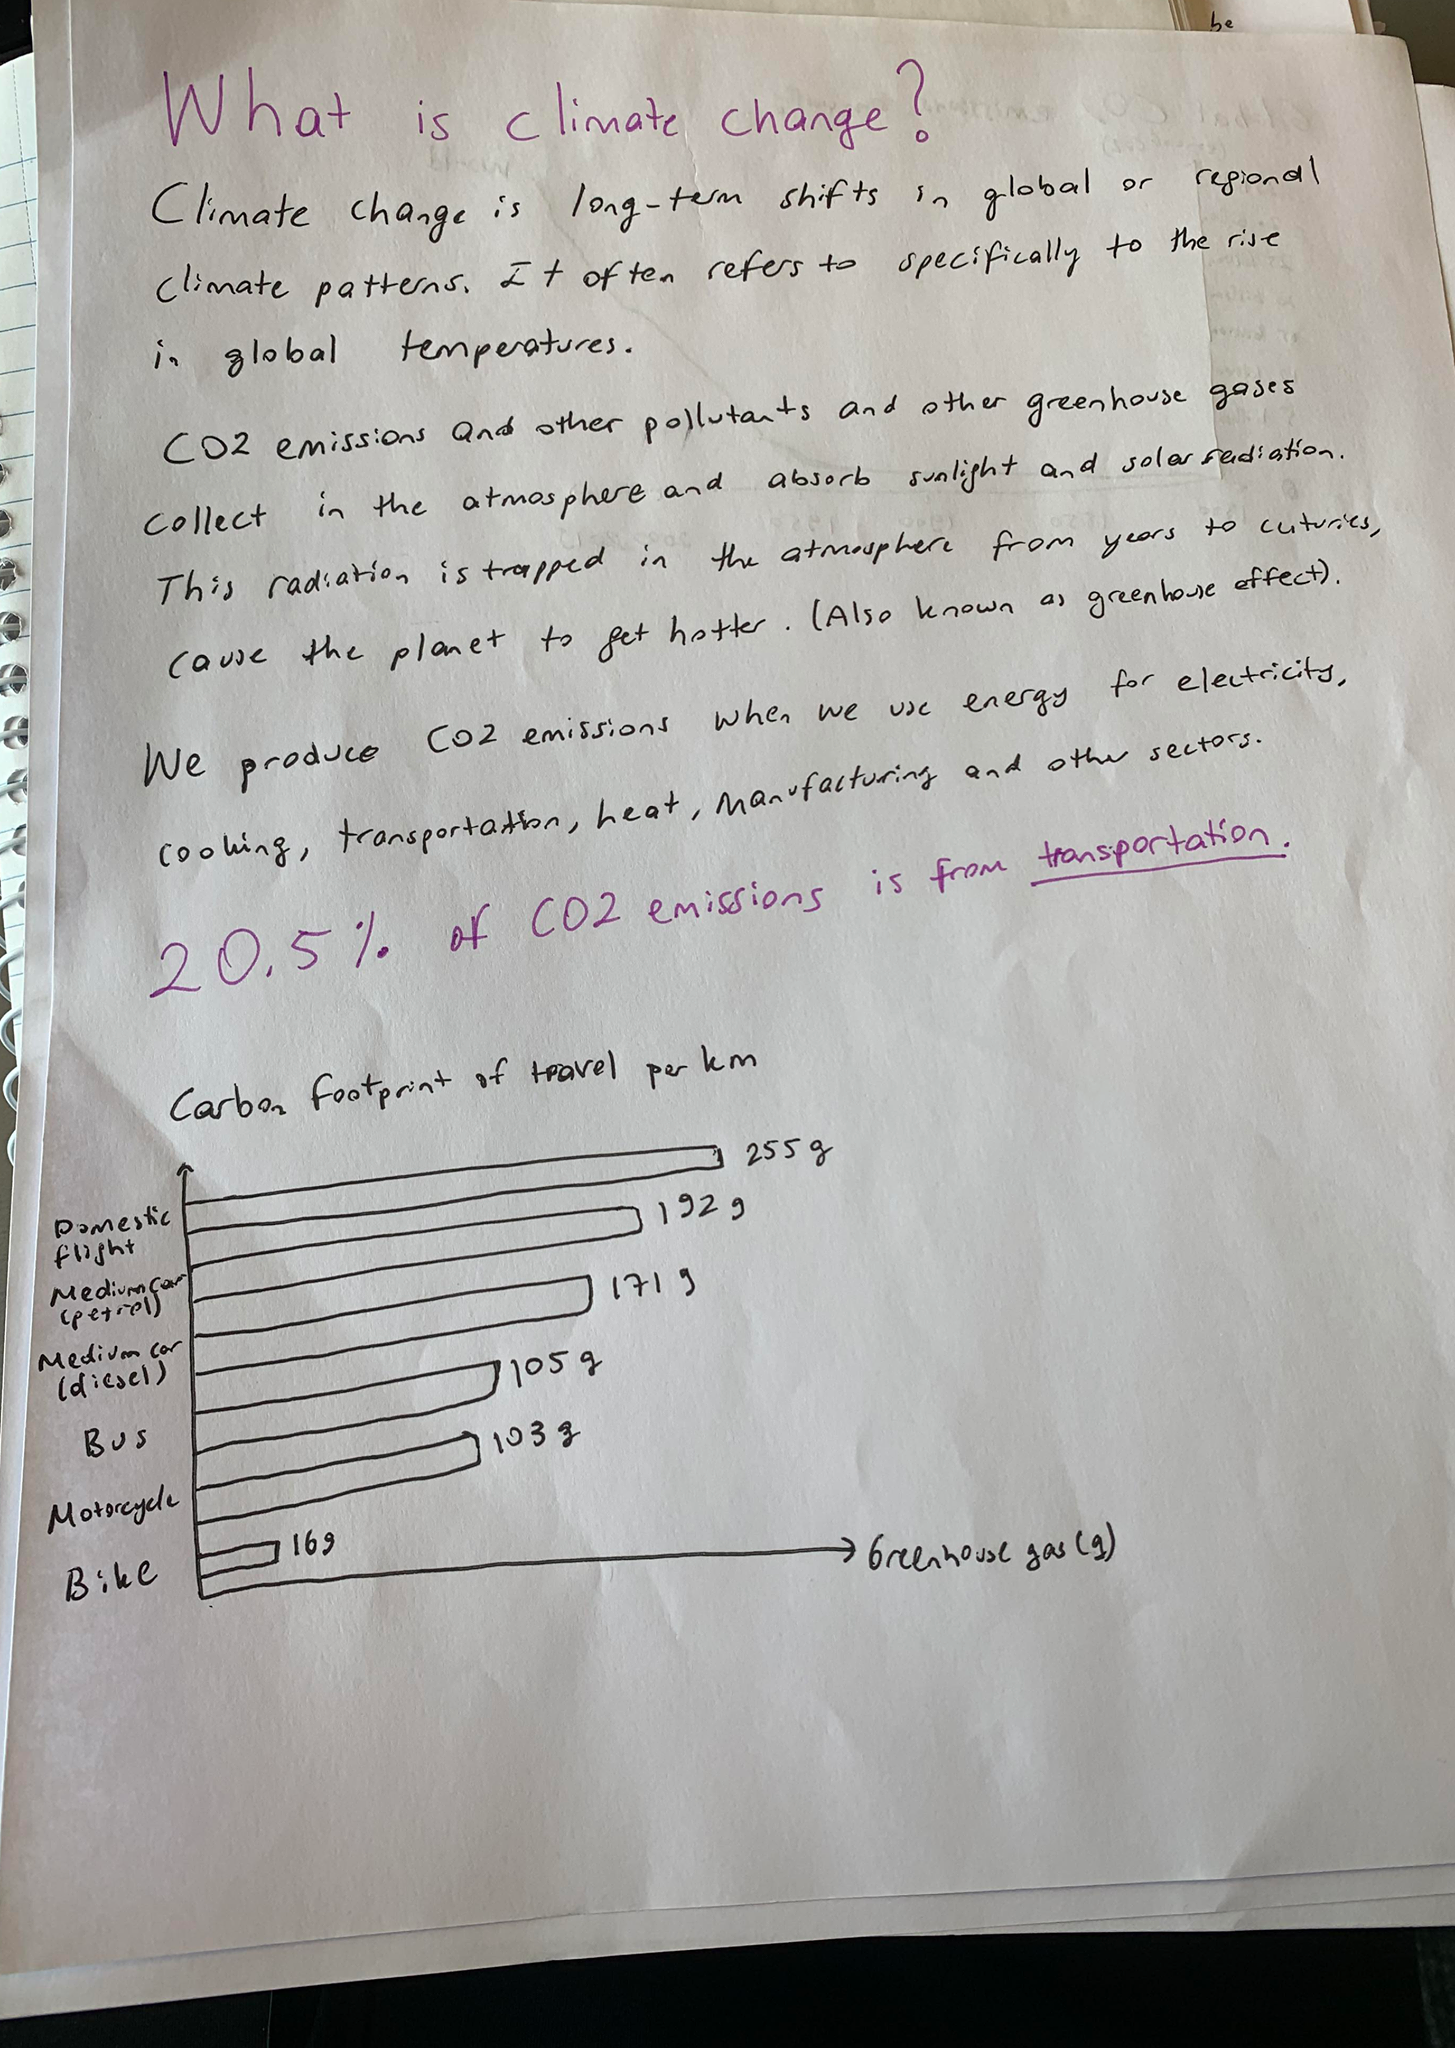 be
What is climate change?
Climate change is long-term shifts in global or regional
climate patterns. It often refers to specifically to the rise
in global temperatures.
CO2 emissions and other pollutants and other greenhouse gases
collect in the atmosphere and absorb sunlight and solar radiation.
This radiation is trapped in the atmosphere from years to cuturies,
cause the planet to get hotter. (Also known as greenhouse effect).
We produce CO2 emissions when we use energy for electricity,
cooking, transportation, heat, manufacturing and other sectors.
20.5% of CO2 emissions is from transportation.
Carbon footprint of travel per km
255 g
Domestic
flight
192 g
Medium car
(petrol)
171 g
Medium car
(diesel)
105 g
Bus
103 g
Motorcycle
16g
Bike
Greenhouse gas (g)